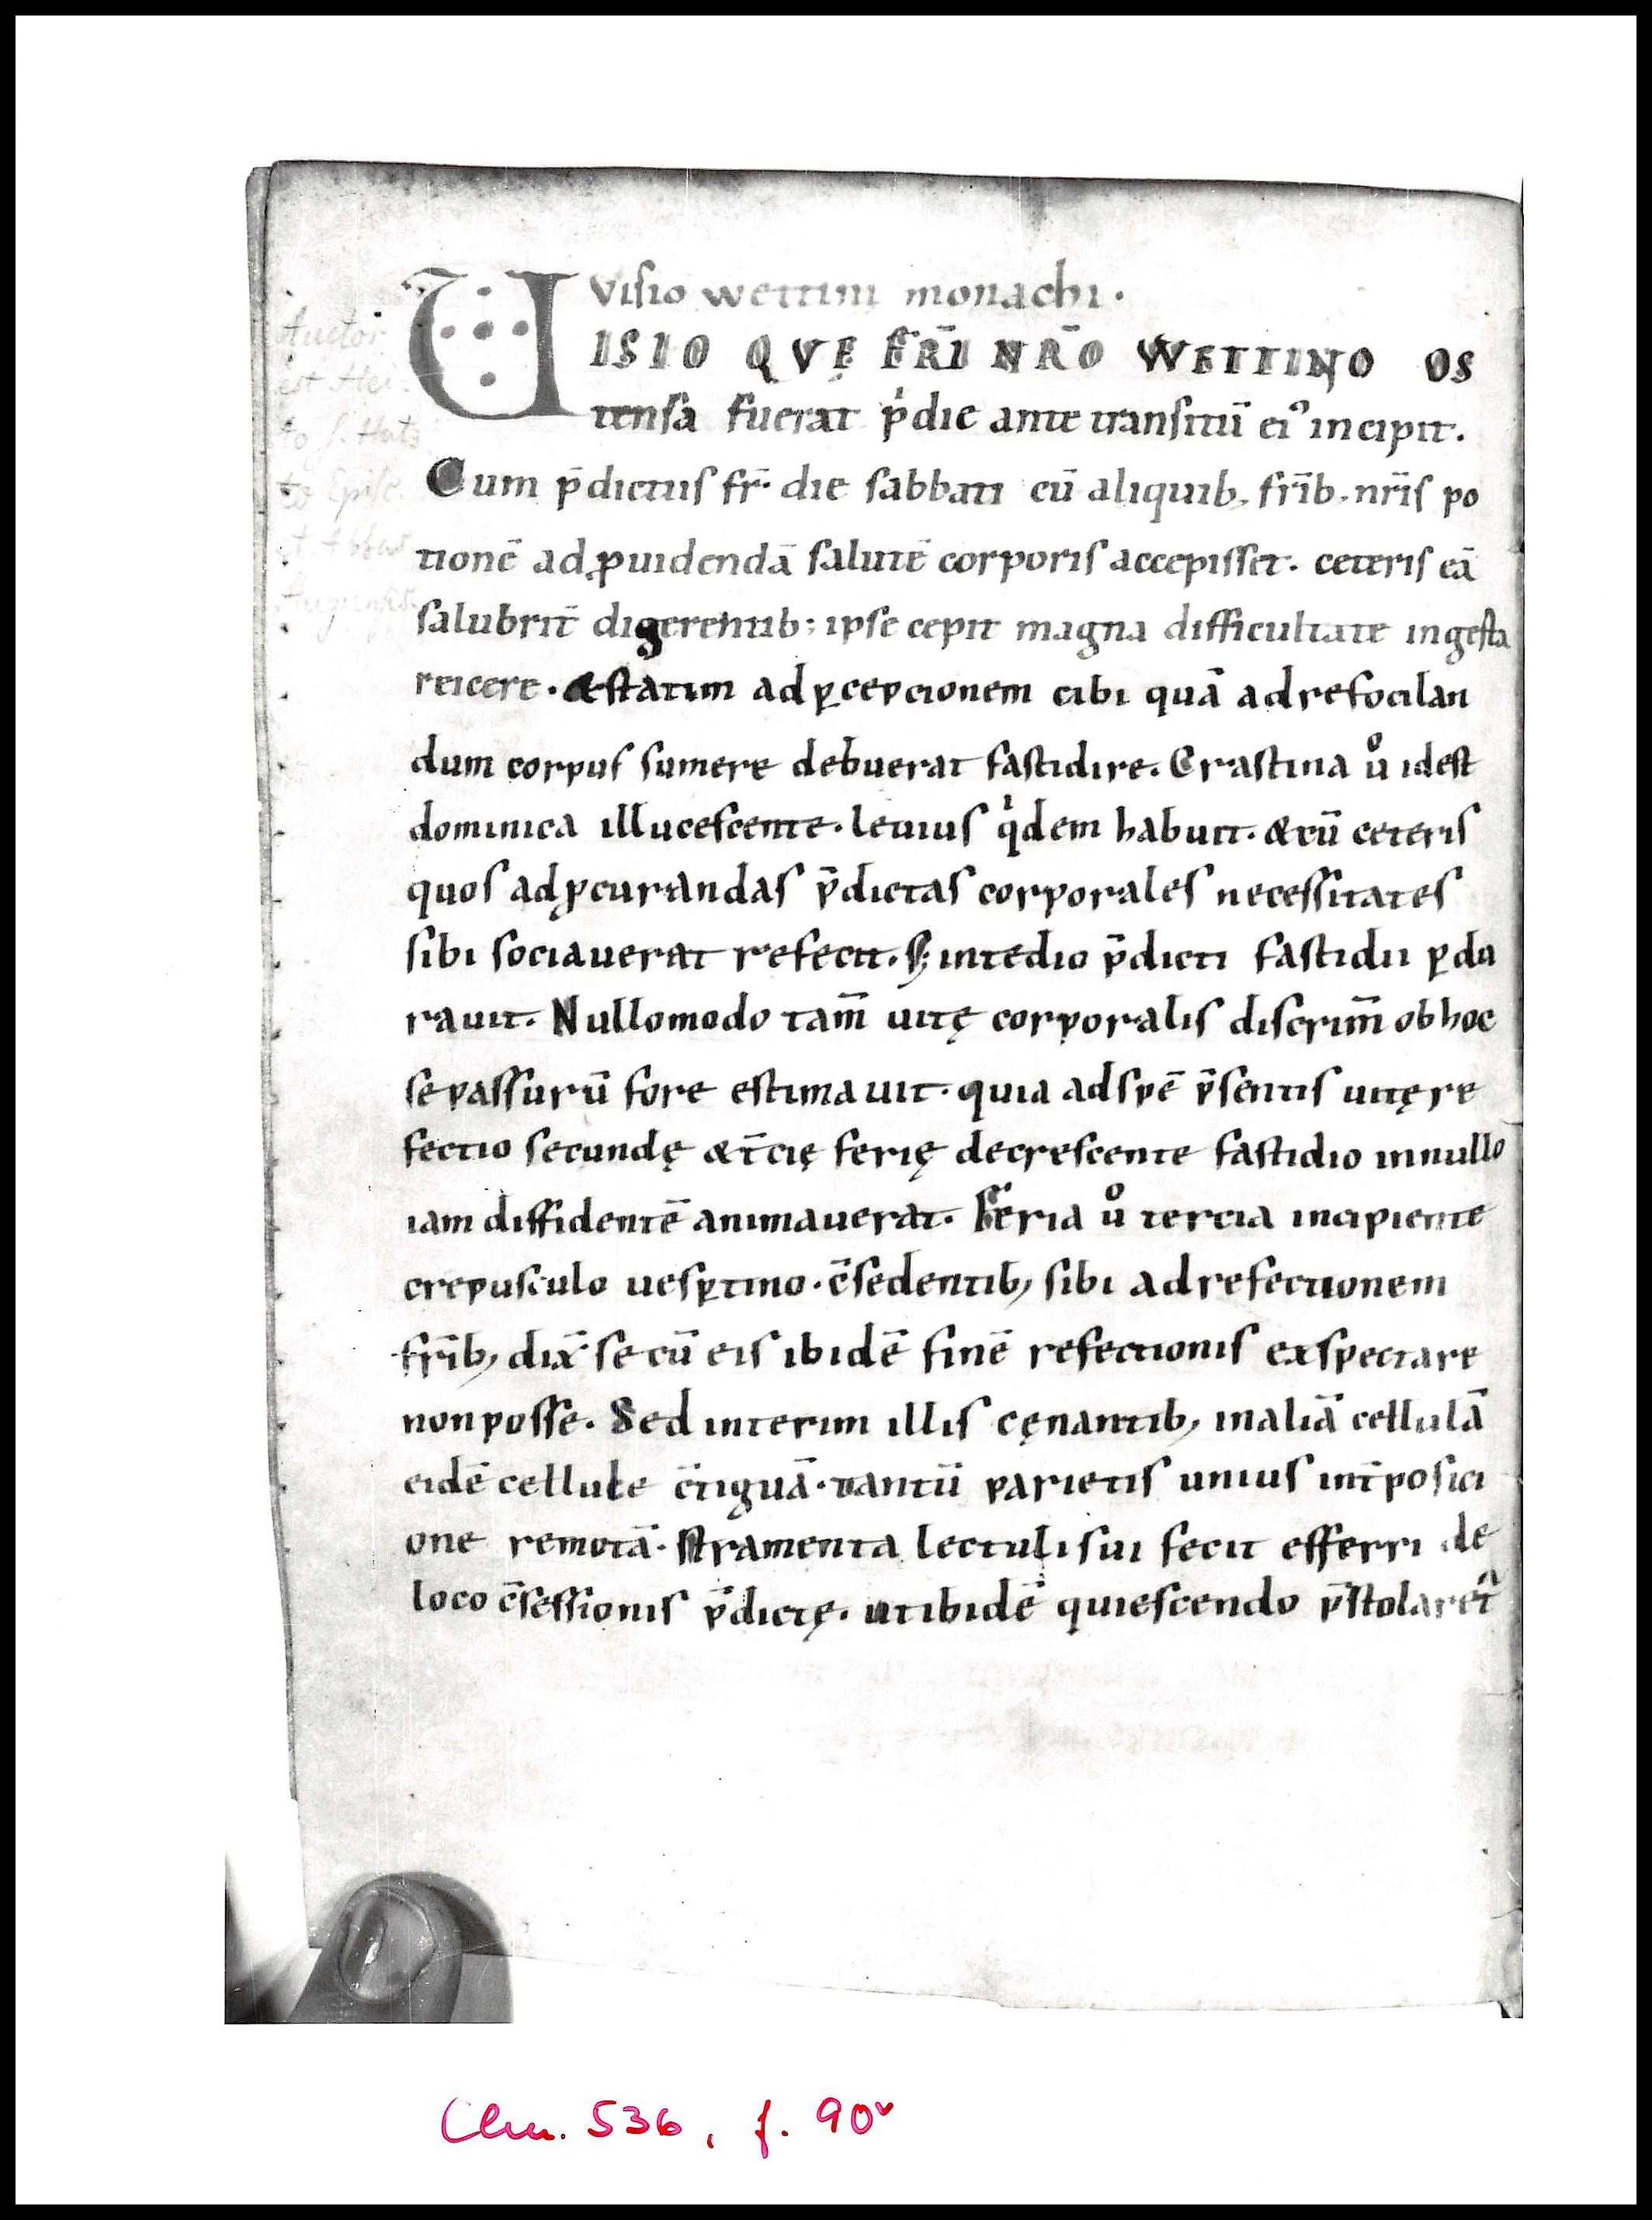 Visio wettini monachi.
UISIO QVĘ FR̄I NR̄O WETTINO OS
tensa fuerat p'die ante transitū ei⁹ incipit.
Cum p̄dictus fr̄. die sabbati cū aliquib; fr̄ib; nr̄is po
tionē ad ꝓuidendā salutē corporis accepisset. ceteris eā
salubrit̄ digerentib; ipse cepit magna difficultate ingesta
reicere. & statim ad ꝑcepcionem cibi quā ad refocilan
dum corpus sumere debuerat fastidire. Crastina ůo idest
dominica illucescente. leuius qͥdem habuit. & cū ceteris
quos ad ꝓcurandas p̄dictas corporales necessitates
sibi sociauerat refecit. S; in tedio p̄dicti fastidii ꝑdu
rauit. Nullomodo tam̄ uitę corporalis discrim̄ ob hoc
se passurū fore estimauit. quia ad spē p̄sentis uitę re
fectio secundę & t̄cię ferię decrescente fastidio in nullo
iam diffidentē animauerat. Feria ůo tercia incipiente
crepusculo uesꝑtino. c̄sedentib; sibi ad refectionem
fr̄ib; dix̄ se cū eis ibidē finē refectionis exspectare
non posse. Sed interim illis cęnantib; in aliā cellulā
eidē cellule c̄tiguā. tantū parietis unius int̄posici
one remotā. stramenta lectuli sui fecit efferri de
loco c̄sessionis p̄dictę. ut ibidē quiescendo p̄stolaret᷑
Auctor
est Hei-
to s. Hat-
to Episc.
et Abbas
Augiensis.
Clm. 536, f. 90ᵛ